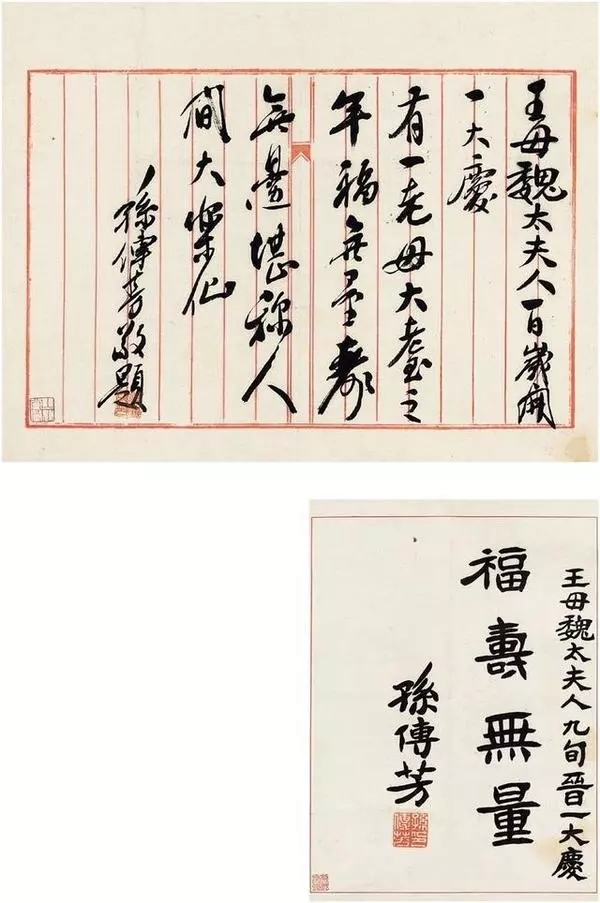 王母魏太夫人百歲開
一大慶
有一老母大耋之
年福無量壽
無邊堪稱人
間大樂仙
孫傳芳敬題
王母魏太夫人九旬晉一大慶
福壽無量
孫傳芳